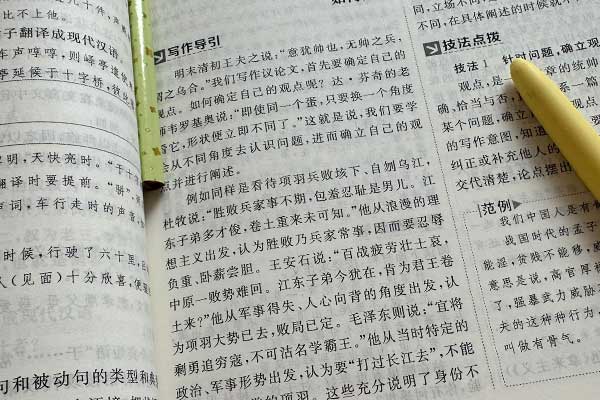 比不上他。
子翻译成现代汉语
车声啍啍,则
延候于十字桥,
明,天快亮时。
翻译时要提前。
词,车行走时的声音,
时候,行驶了六十里,
人(见面)十分欣喜,
句和被动句的类型和
写作导引
明末清初王夫之说:“意犹帅也,无帅之兵,
谓之乌合。”我们写作议论文,首先要确定自己的
观点。如何确定自己的观点呢?达·芬奇的老
师韦罗基奥说:“即使同一个蛋,只要换一个角度
看它,形状便立即不同了。”这就是说,我们要学
会从不同角度去认识问题,进而确立自己的观
点并进行阐述。
例如同样是看待项羽兵败垓下、自刎乌江,
杜牧说:“胜败兵家事不期,包羞忍耻是男儿。江
东子弟多才俊,卷土重来未可知。”他从浪漫的理
想主义出发,认为胜败乃兵家常事,因而要忍辱
负重、卧薪尝胆。王安石说:“百战疲劳壮士哀,
中原一败势难回。江东子弟今犹在,肯为君王卷
土来?”他从军事得失、人心向背的角度出发,认
为项羽大势已去,败局已定。毛泽东则说:“宜将
剩勇追穷寇,不可沽名学霸王。”他从当时特定的
政治、军事形势出发,认为要“打过长江去”,不能
学的项羽。这些充分说明了身份不
同,立场不同,
不同,在具体阐述的时候就
技法点拨
技法1 针对问题,确立观
观点,是 章的统帅
确,恰当与否, 系一篇
某个问题,确立 观点
的写作意图,知道
纠正或补充他人的
交代清楚,论点摆出
范例
我们中国人是有骨
战国时代的孟子
能淫,贫贱不能移,威
意思是说,高官厚禄
了,强暴武力威胁
夫的这种种行为,
叫做有骨气。